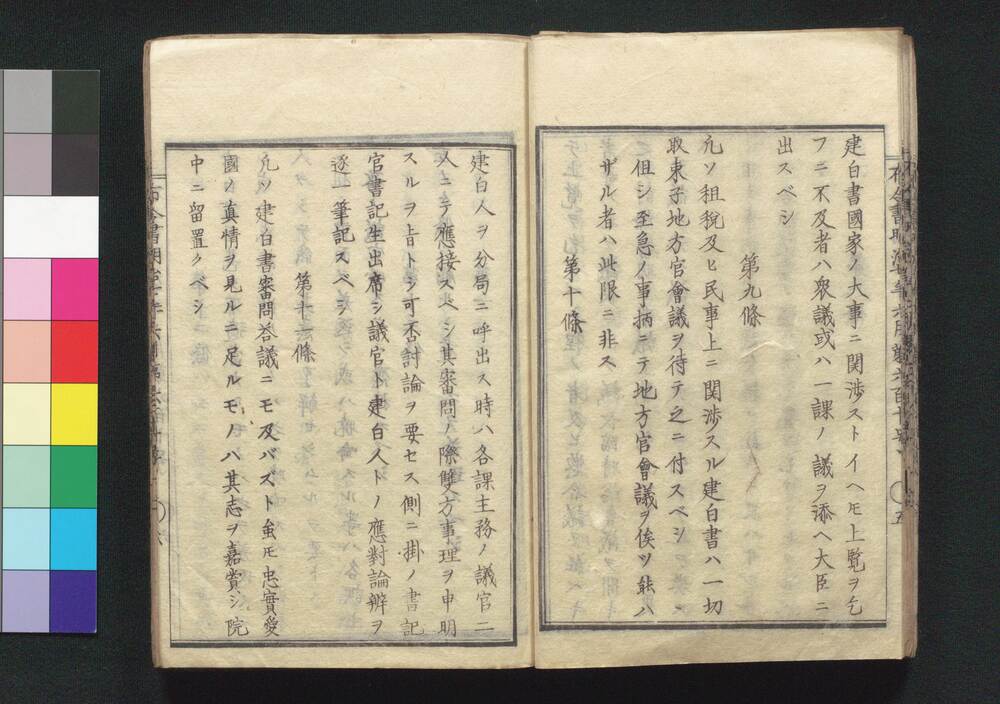 建白書國家ノ大事ニ関渉ストイヘ𪜈上覧ヲ乞
フニ不及者ハ衆議或ハ一課ノ議ヲ添ヘ大臣ニ
出スベシ
第九條
凢ソ租税及ヒ民事上ニ関渉スル建白書ハ一切
取束子地方官會議ヲ待テ之ニ付スベシ
但シ至急ノ事柄ニテ地方官會議ヲ俟ツ能ハ
ザル者ハ此限ニ非ス
第十條
建白人ヲ分局ニ呼出ス時ハ各課主務ノ議官二
人ニテ應接スベシ其審問ノ際雙方事理ヲ申明
スルヲ旨トシ可否討論ヲ要セス側ニ掛ノ書記
官書記生出席シ議官ト建白人トノ應對論辨ヲ
逐一筆記スベシ
第十一條
凢ソ建白書審問荅議ニモ及バズト虽𪜈忠實愛
國ノ真情ヲ見ルニ足ルモノハ其志ヲ嘉賞シ院
中ニ留置クベシ